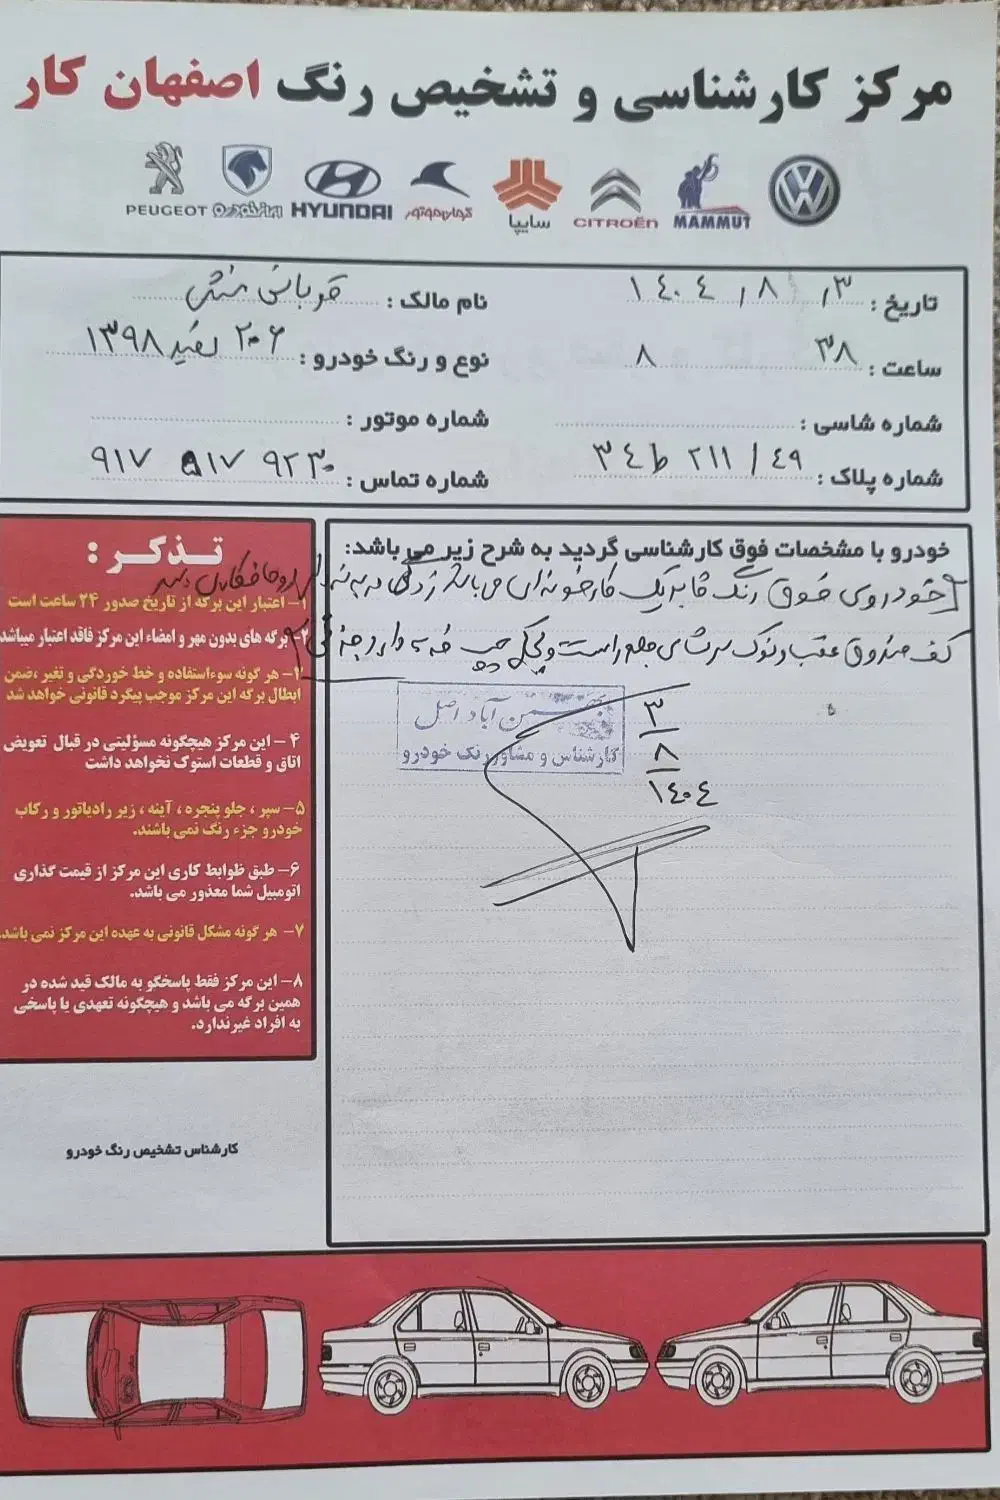 مرکز کارشناسی و تشخیص رنگ اصفهان کار
PEUGEOT ایران‌خودرو HYUNDAI کرمان‌موتور سایپا CITROËN MAMMUT
تاریخ : ۱۴۰۴ / ۸ / ۳
نام مالک :
ساعت : ۳۸ ۸
نوع و رنگ خودرو : ۲۰۶ سفید ۱۳۹۸
شماره شاسی :
شماره موتور :
شماره پلاک : ۴۹ / ۲۱۱ ط ۳۴
شماره تماس : ۹۱۷ ۵۱۷ ۹۲۳۰
خودرو با مشخصات فوق کارشناسی گردید به شرح زیر می باشد:
خودروی فوق رنگ فابریک کارخونه ای می باشد
کف صندوق عقب و نوک سر شاسی جلو راست و چپ
بهمن آباد اصل
کارشناس و مشاور رنگ خودرو
۳
۸
۱۴۰۴
تذکر :
۱- اعتبار این برگه از تاریخ صدور ۲۴ ساعت است
۲- برگه های بدون مهر و امضاء این مرکز فاقد اعتبار میباشد
۳- هر گونه سوءاستفاده و خط خوردگی و تغیر ،ضمن
ابطال برگه این مرکز موجب پیگرد قانونی خواهد شد
۴- این مرکز هیچگونه مسؤلیتی در قبال تعویض
اتاق و قطعات استوک نخواهد داشت
۵- سپر ، جلو پنجره ، آینه ، زیر رادیاتور و رکاب
خودرو جزء رنگ نمی باشند.
۶- طبق ظوابط کاری این مرکز از قیمت گذاری
اتومبیل شما معذور می باشد.
۷- هر گونه مشکل قانونی به عهده این مرکز نمی باشد.
۸- این مرکز فقط پاسخگو به مالک قید شده در
همین برگه می باشد و هیچگونه تعهدی یا پاسخی
به افراد غیرندارد.
کارشناس تشخیص رنگ خودرو